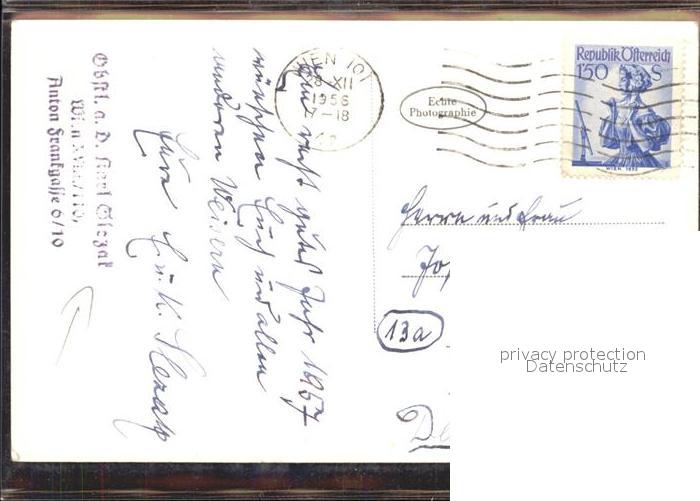 Obstl. a. D. Karl Slezak
Wien XVIII/110,
Anton Frankgasse 6/10
Ein recht gutes Jahr 1957
wünschen Euch und allen
anderen Weisern
Eure E. u. K. Slezak
WIEN 101
28·XII
1956
7-18
Echte
Photographie
Republik Österreich
1'50 S
WIEN 1850
Herrn und Frau
Jo
13a
De
privacy protection
Datenschutz